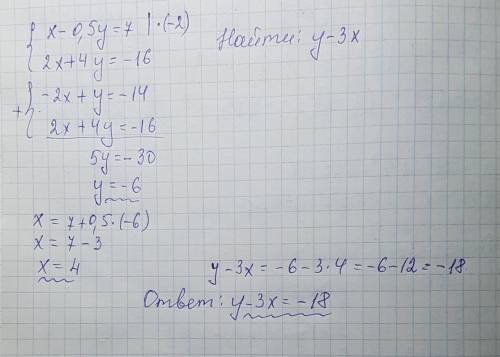 x - 0,5y = 7 | · (-2)
2x + 4y = -16
Найти: y - 3x
+ -2x + y = -14
2x + 4y = -16
5y = -30
y = -6
x = 7 + 0,5 · (-6)
x = 7 - 3
x = 4
y - 3x = -6 - 3 · 4 = -6 - 12 = -18
Ответ: y - 3x = -18